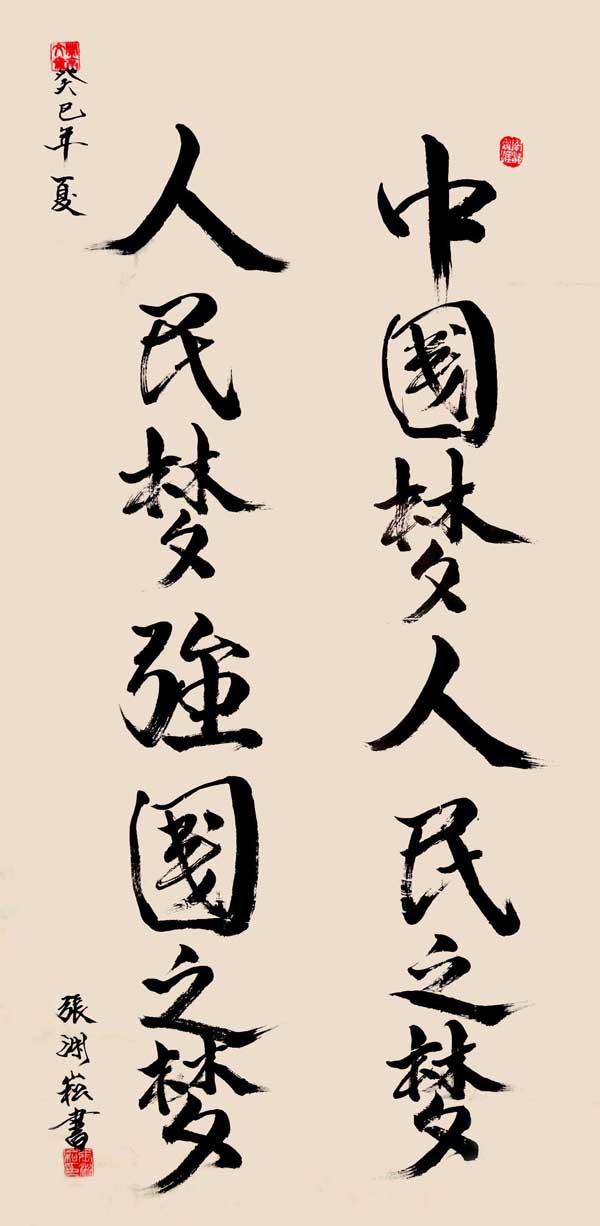 中國梦人民之梦
人民梦強國之梦
癸巳年夏
張渊崧書